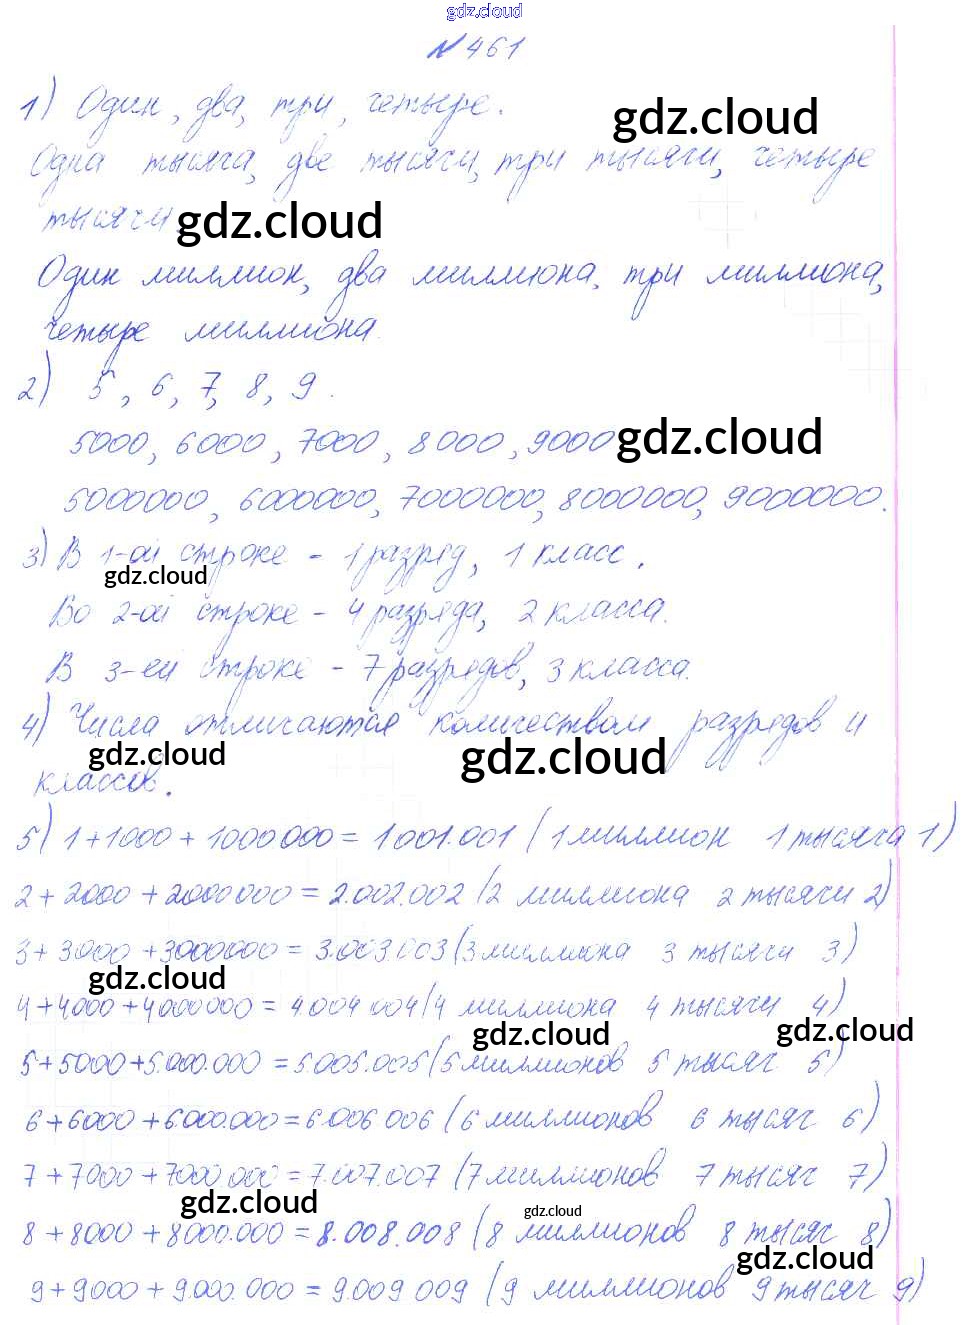 gdz.cloud
№ 461
1) Один, два, три, четыре.
gdz.cloud
Одна тысяча, две тысячи, три тысячи, четыре
тысячи.
gdz.cloud
Один миллион, два миллиона, три миллиона,
четыре миллиона.
2) 5, 6, 7, 8, 9.
5000, 6000, 7000, 8000, 9000
gdz.cloud
5000000, 6000000, 7000000, 8000000, 9000000.
3) В 1-ой строке - 1 разряд, 1 класс.
gdz.cloud
Во 2-ой строке - 4 разряда, 2 класса.
В 3-ей строке - 7 разрядов, 3 класса.
4) Числа отличаются количеством разрядов и
gdz.cloud
gdz.cloud
классов.
5) 1+1000+1000000=1001.001 (1 миллион 1 тысяча 1)
2+2000+2000000=2.002.002 (2 миллиона 2 тысячи 2)
3+3000+3000000=3.003.003 (3 миллиона 3 тысячи 3)
gdz.cloud
4+4000+4000000=4.004.004 (4 миллиона 4 тысячи 4)
gdz.cloud
gdz.cloud
5+5000+5.000.000=5.005.005 (5 миллионов 5 тысяч 5)
6+6000+6.000.000=6.006.006 (6 миллионов 6 тысяч 6)
7+7000+7000.000=7.007.007 (7 миллионов 7 тысяч 7)
gdz.cloud
gdz.cloud
8+8000+8000.000=8.008.008 (8 миллионов 8 тысяч 8)
gdz.cloud
9+9000+9.000.000=9.009.009 (9 миллионов 9 тысяч 9)